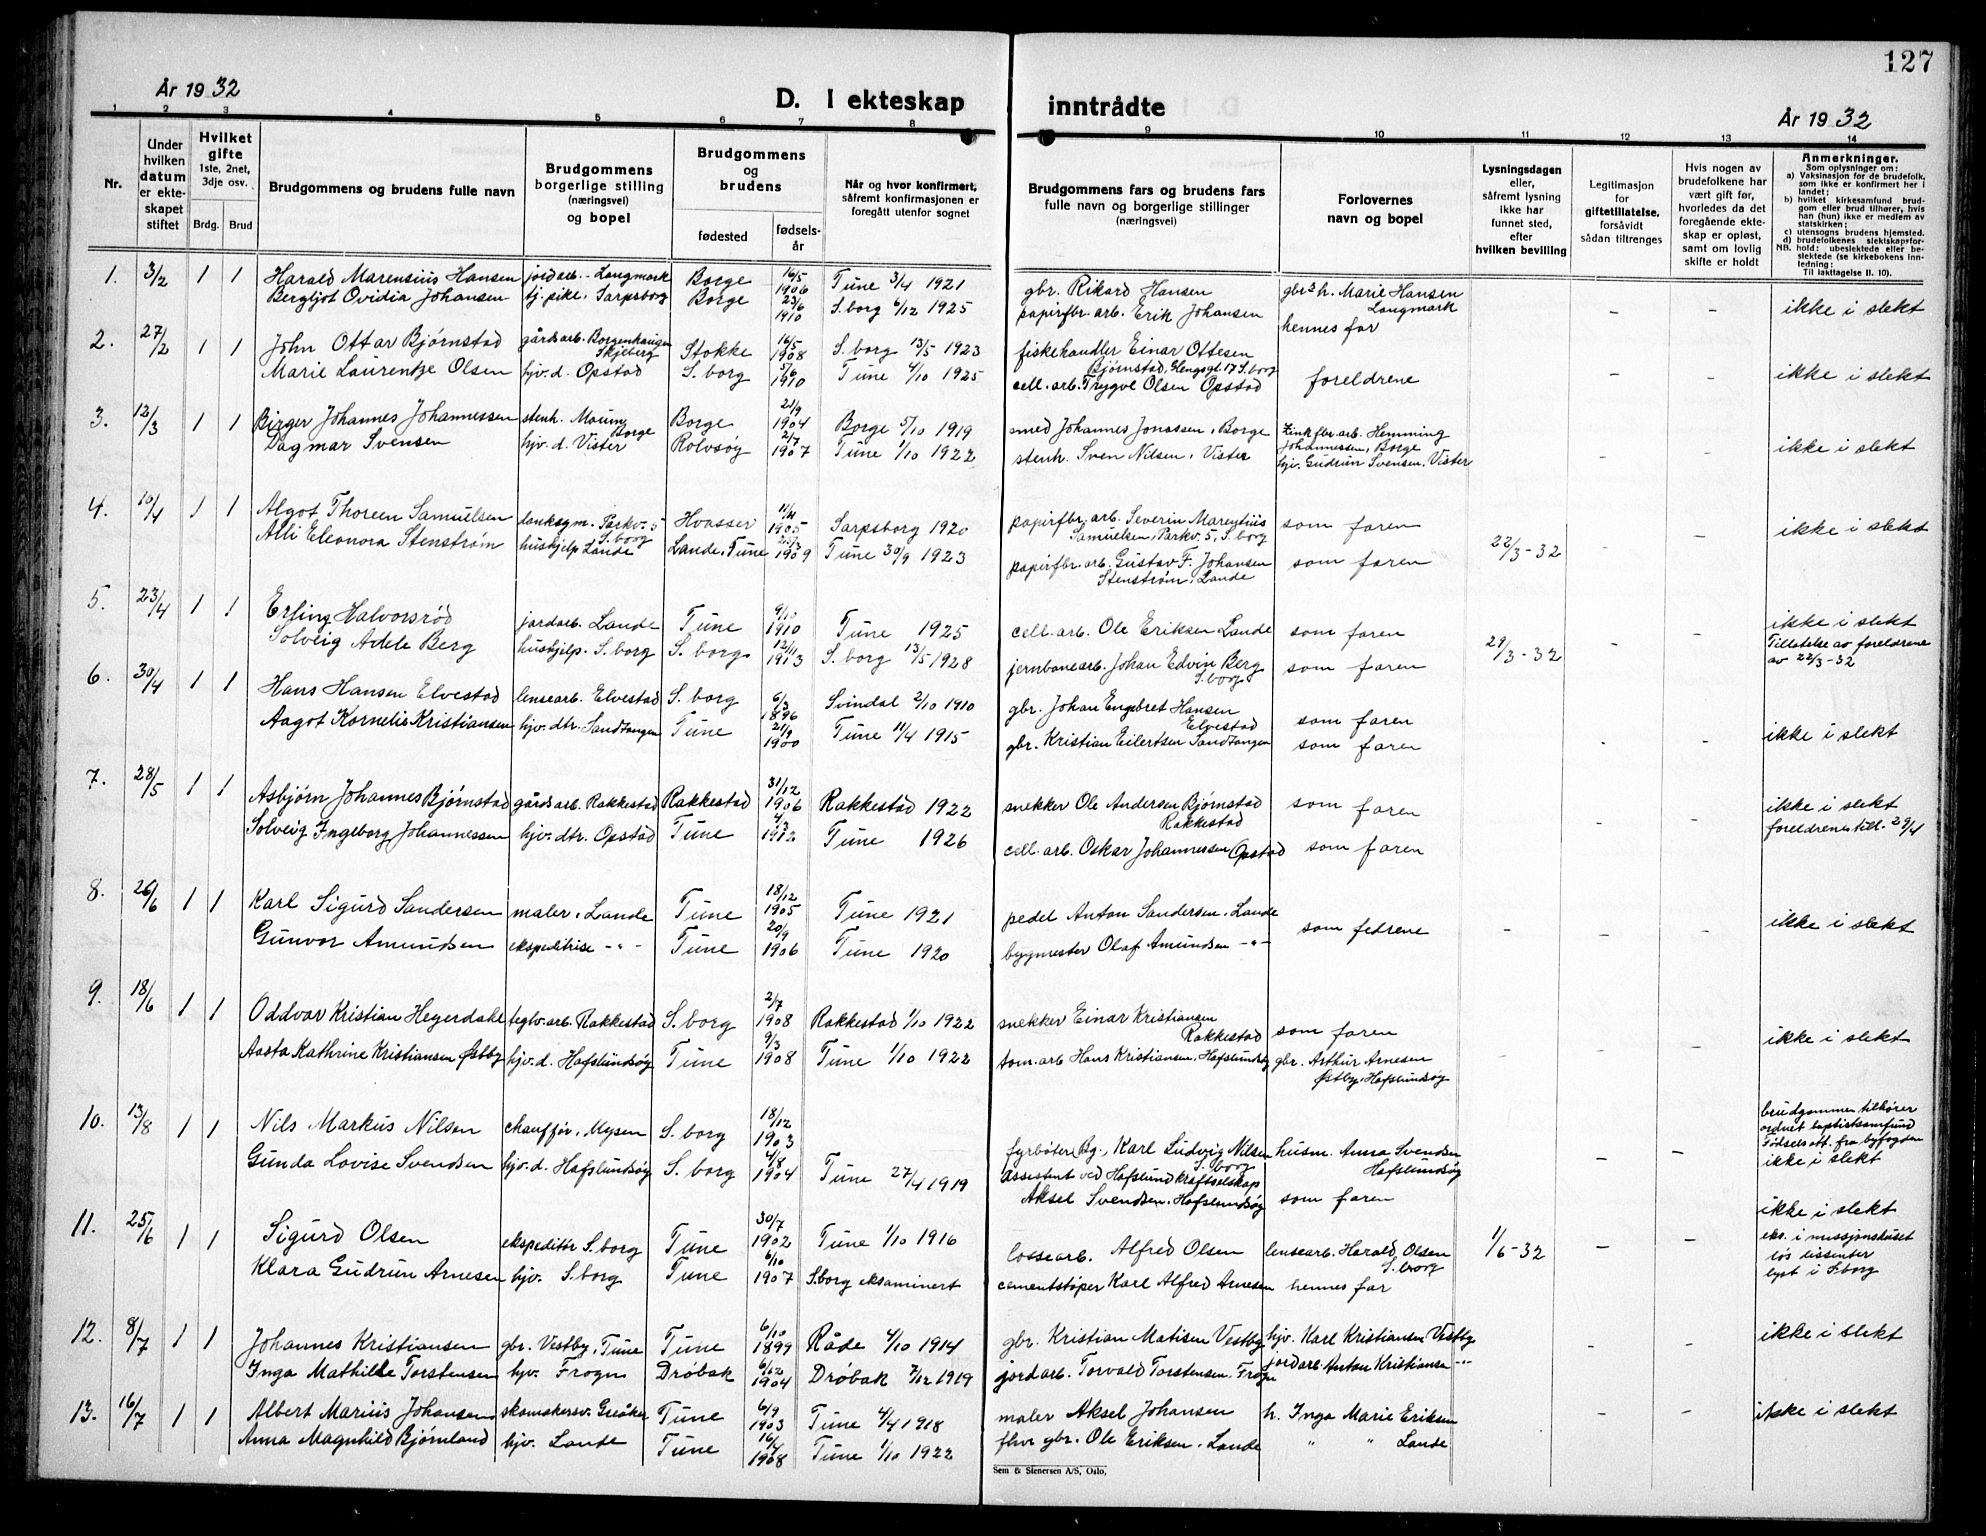 127
År 1932
D. I ekteskap inntrådte
År 1932
1 2 3 4 5 6 7 8 9 10 11 12 13 14
Nr.
Under hvilken datum er ekteskapet stiftet
Hvilket gifte 1ste, 2net, 3dje osv.
Brdg. Brud
Brudgommens og brudens fulle navn
Brudgommens borgerlige stilling (næringsvei) og bopel
Brudgommens og brudens
fødested
fødselsår
Når og hvor konfirmert, såfremt konfirmasjonen er foregått utenfor sognet
Brudgommens fars og brudens fars fulle navn og borgerlige stillinger (næringsvei)
Forlovernes navn og bopel
Lysningsdagen eller, såfremt lysning ikke har funnet sted, efter hvilken bevilling
Legitimasjon for giftetillatelse, forsåvidt sådan tiltrenges
Hvis nogen av brudefolkene har vært gift før, hvorledes da det foregående ekteskap er opløst, samt om lovlig skifte er holdt
Anmerkninger.
Som oplysninger om:
a) Vaksinasjon for de brudefolk, som ikke er konfirmert her i landet;
b) hvilket kirkesamfund brudgom eller brud tilhører, hvis han (hun) ikke er medlem av statskirken;
c) utensogns brudens hjemsted.
d) brudefolkenes slektskapsforhold: ubeslektede eller beslektede (se kirkebokens innledning:
NB.
Til iakttagelse II. 10).
1. 3/2 1 1 Harald Marensius Hansen jordarb. - Langmark Borge 16/5 1906 Tune 3/4 1921 gbr. Rikard Hansen gbr. h. Marie Hansen Langmark - - ikke i slekt
Bergljot Ovidia Johansen hj. pike, Sarpsborg Borge 23/6 1910 S.borg 6/12 1925 papirfbr. arb. Erik Johansen hennes far
2. 27/2 1 1 John Ottar Bjørnstad gårdsarb. Borgenhaugen Skjeberg Stokke 16/5 1908 S. borg 13/5 1923 fiskehandler Einar Ottesen Bjørnstad, Glengsgt 17 S.borg
Marie Laurentze Olsen hjv. d. Opstad S. borg 5/6 1910 Tune 4/10 1925 cell. arb. Trygve Olsen Opstad foreldrene - - ikke i slekt
3. 12/3 1 1 Birger Johannes Johannessen stenh. Moum, Borge Borge 21/9 1904 Borge 5/10 1919 smed Johannes Jonassen, Borge Zinkfbr. arb. Hemming Johannessen, Borge
Dagmar Svensen hjv. d. Vister Rolvsøy 2/7 1907 Tune 1/10 1922 stenh. Sven Nilsen, Vister hjv. Gudrun Svensen, Vister - - ikke i slekt
4. 10/4 1 1 Algot Thoreen Samuelsen lanksgm. Parkv. 5 S. borg Hvasser 11/11 1905 Sarpsborg 1920 papirfbr. arb. Severin Marentius Samuelsen, Parkv. 5, S. borg som faren
Alli Eleonora Stenstrøm hushjelp Lande Lande, Tune 25/3 1909 Tune 30/9 1923 papirfbr. arb. Gustav F. Johansen Stenstrøm, Lande som faren 22/3-32 - - ikke i slekt
5. 23/4 1 1 Erling Halvorsrød jordarb. Lande Tune 9/10 1910 Tune 1925 cell. arb. Ole Eriksen Lande som faren ikke i slekt
Solveig Adele Berg hushjelp. S. borg S. borg 12/11 1913 S. borg 13/5 1928 jernbanearb. Johan Edvin Berg S. borg som faren 29/3-32 - - Tillatelse av foreldrene av 22/3-32
6. 30/4 1 1 Hans Hansen Elvestad lensearb. Elvestad S. borg 6/3 1896 Svindal 2/10 1910 gbr. Johan Engebret Hansen Elvestad som faren
Aagot Kornelie Kristiansen hjv. dtr. Sandtangen Tune 21/9 1900 Tune 11/4 1915 gbr. Kristian Eilertsen Sandtangen som faren - - ikke i slekt
7. 28/5 1 1 Asbjørn Johannes Bjørnstad gårdsarb. Rakkestad Rakkestad 31/12 1906 Rakkestad 1922 snekker Ole Andersen Bjørnstad Rakkestad som faren ikke i slekt
Solveig Ingeborg Johannessen hjv. dtr. Opstad Tune 4/3 1912 Tune 1926 cell. arb. Oskar Johannessen Opstad som faren - - foreldrenes till. 29/4
8. 26/6 1 1 Karl Sigurd Sandersen maler, Lande Tune 18/12 1905 Tune 1921 pedel Anton Sandersen, Lande som fedrene - - - ikke i slekt
Gunvor Amundsen ekspeditrise -"- Tune 20/9 1906 Tune 1920 byggmester Olaf Amundsen -"-
9. 18/6 1 1 Oddvar Kristian Heyerdahl teglv. arb. Rakkestad S. borg 2/7 1908 Rakkestad 1/10 1922 snekker Einar Kristiansen Rakkestad som faren
Aasta Kathrine Kristiansen Østby hjv. d. Hafslundsøy Tune 9/3 1908 Tune 1/10 1922 tom. arb Hans Kristiansen, Hafslundsøy gbr. Arthur Arnesen Østby, Hafslundsøy - - ikke i slekt
10. 13/8 1 1 Nils Markus Nilsen chauffør, Mysen S. borg 18/12 1903 fyrbøter Bg., Karl Ludvig Nilsen S. borg husm. Anna Svendsen Hafslundsøy
Gunda Lovise Svendsen hjv. d. Hafslundsøy S. borg 4/8 1904 Tune 27/4 1919 assistent ved Hafslund Kraftselskap Aksel Svendsen, Hafslundsøy som faren - -
brudgommen tilhører ordnet baptistsamfund Fødselsatt. fra byfogden ikke i slekt
11. 25/6 1 1 Sigurd Olsen ekspeditør S. borg Tune 30/7 1902 Tune 1/10 1916 lossearb. Alfred Olsen lensearb. Harald Olsen S. borg 1/6-32 - -
Klara Gudrun Arnesen hjv. S. borg Tune 6/10 1907 S.borg eksaminert cementstøper Karl Alfred Arnesen hennes far
ikke i slekt eks. i missjonshuset løs dissenter lyst i S.borg
12. 8/7 1 1 Johannes Kristiansen gbr. Vestby, Tune Tune 6/10 1899 Råde 4/10 1914 gbr. Kristian Matisen Vestby hjv. Karl Kristiansen Vestby ikke i slekt
Inga Mathilde Torstensen hjv. Frogn Drøbak 6/12 1904 Drøbak 7/12 1919 jordarb. Torvald Torstensen, Frogn jordarb. Anton Kristiansen -"- - -
13. 16/7 1 1 Albert Marius Johansen skomakersv. Greåker Tune 6/9 1903 Tune 4/4 1918 maler Aksel Johansen h. Inga Marie Eriksen - - ikke i slekt
Anna Magnhild Bjørnland hjv. Lande Tune 16/4 1908 Tune 1/10 1922 fhv gbr. Ole Eriksen, Lande " " Lande
Sem & Stenersen A/S, Oslo,